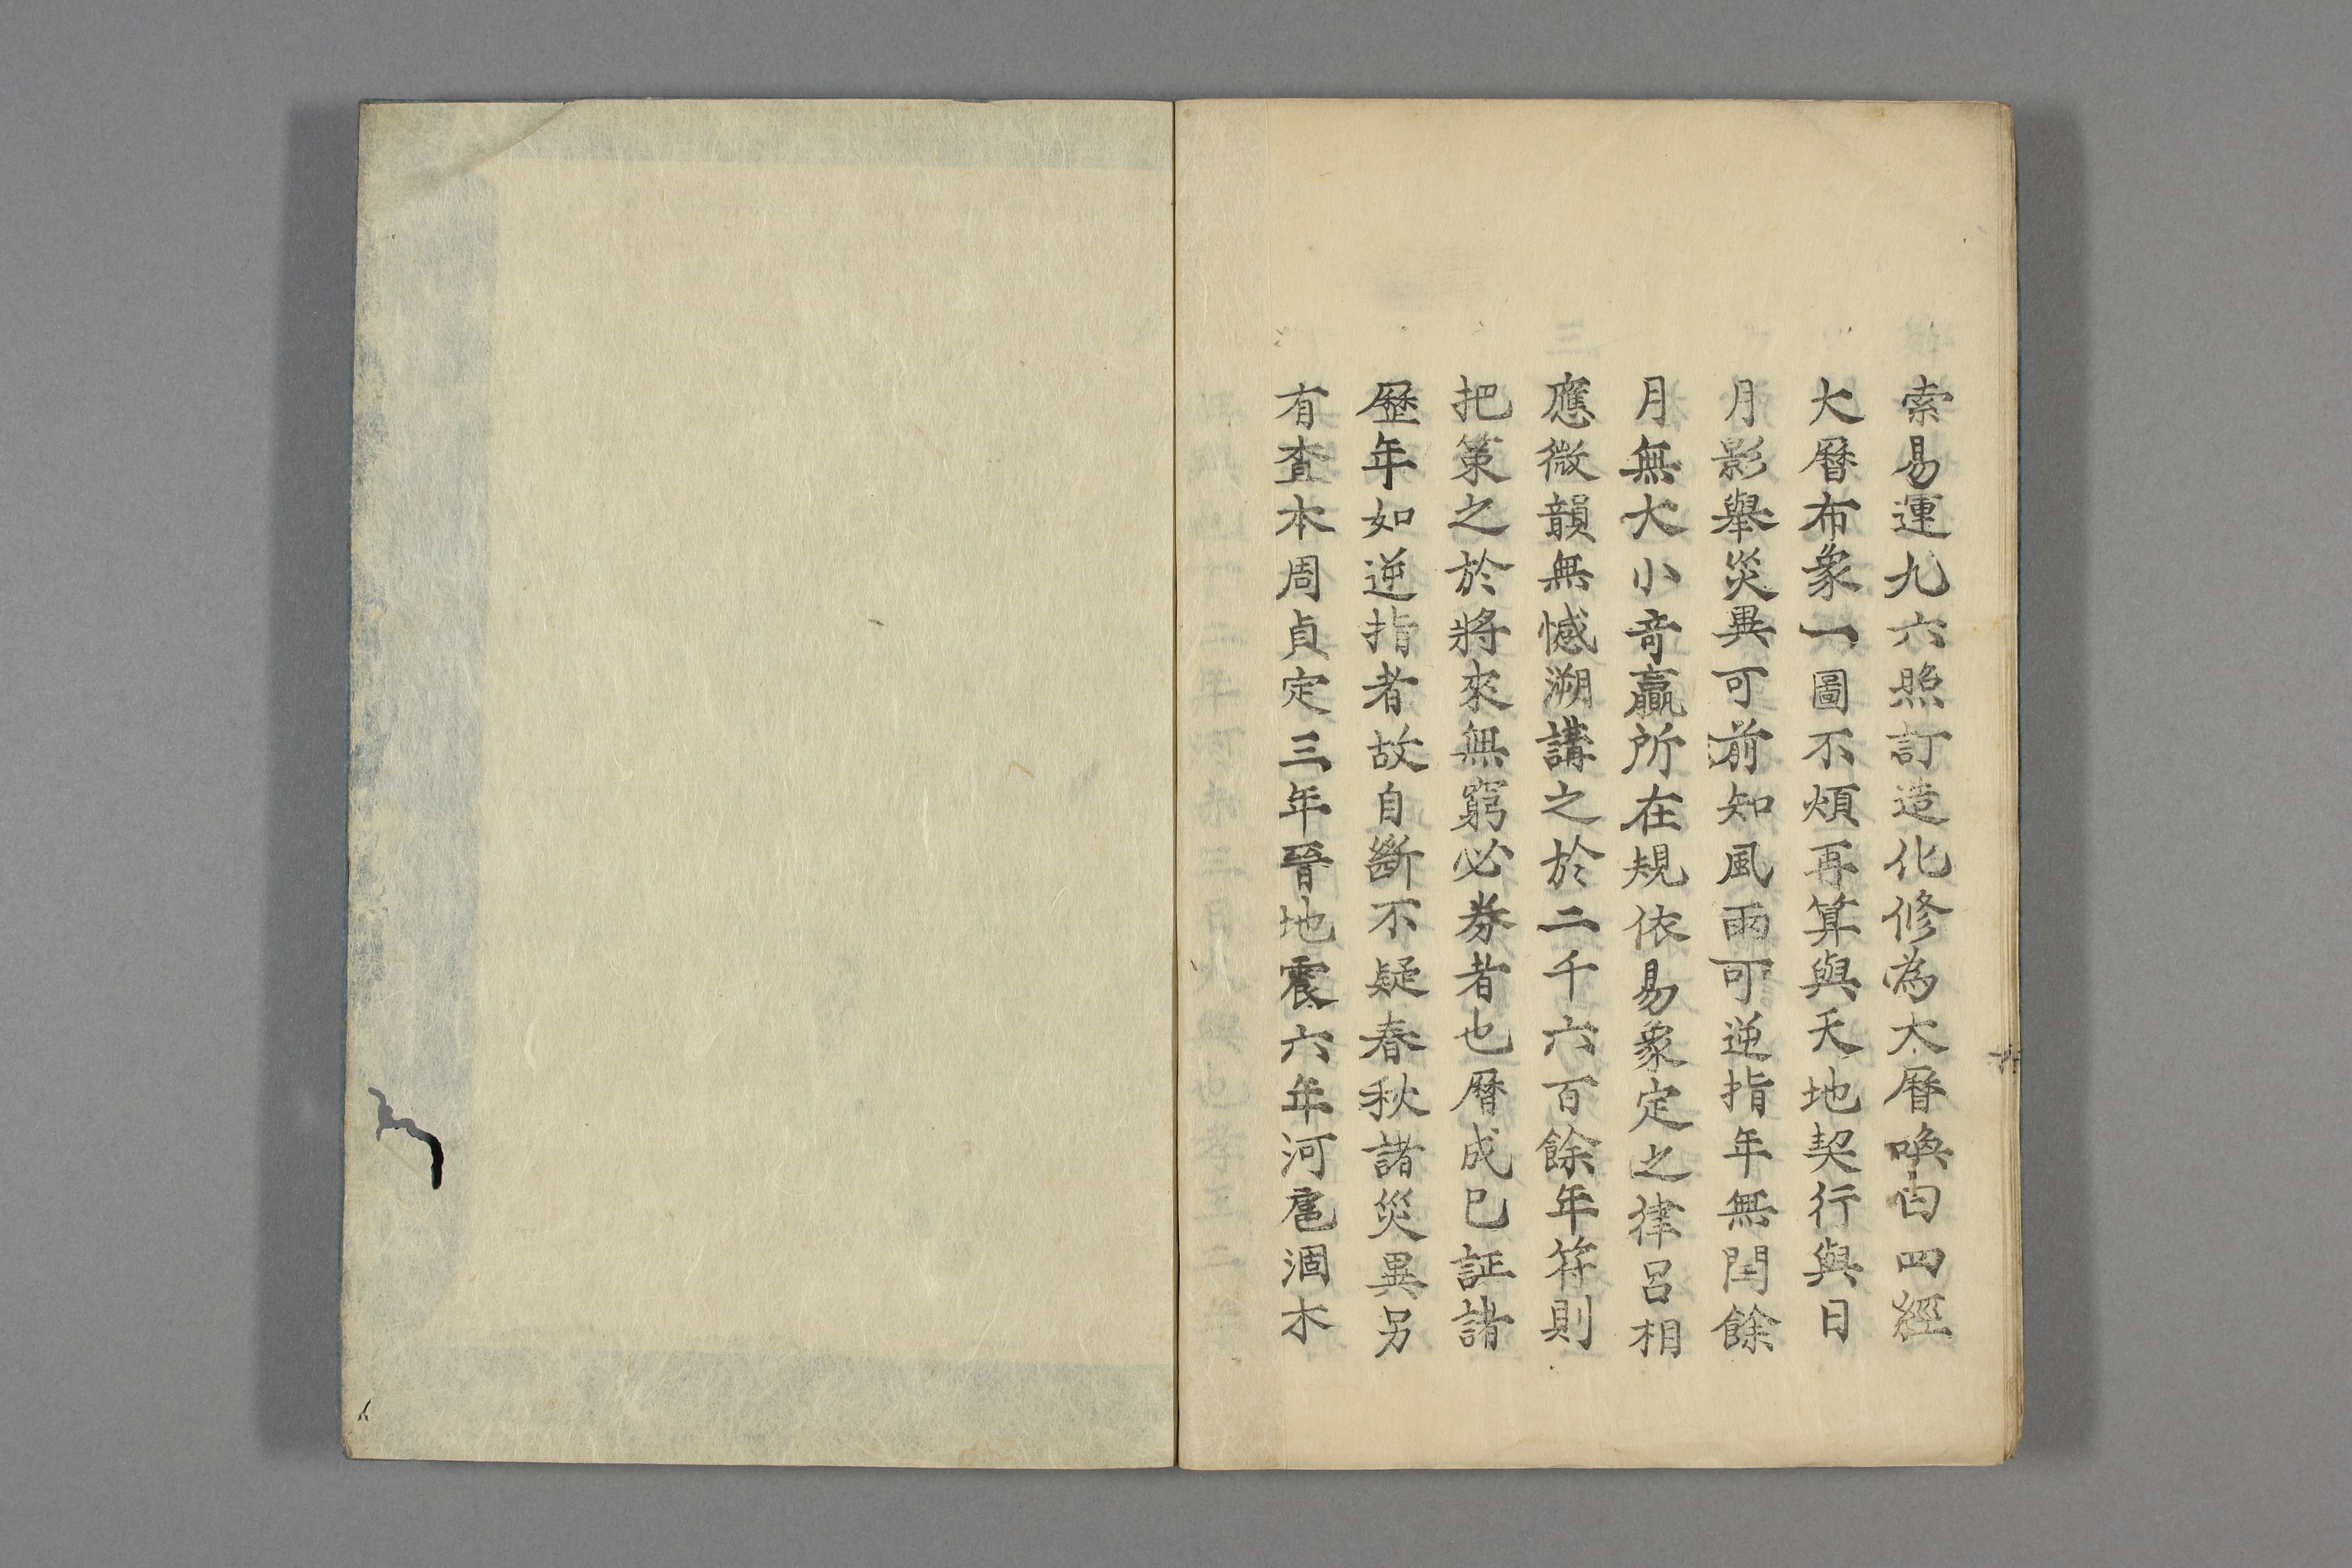 索易運九六照訂造化修為大曆喚白四經
大曆布象一圖不煩再算與天地契行與日
月影舉災異可前知風雨可逆指年無閏餘
月無大小竒贏所在規依易象定之律呂相
應微韻無憾溯講之於二千六百餘年符則
把策之於將來無窮必券者也曆成已証諸
歷年如逆指者故自斷不疑春秋諸災異另
有査本周貞定三年晉地震六年河扈涸木